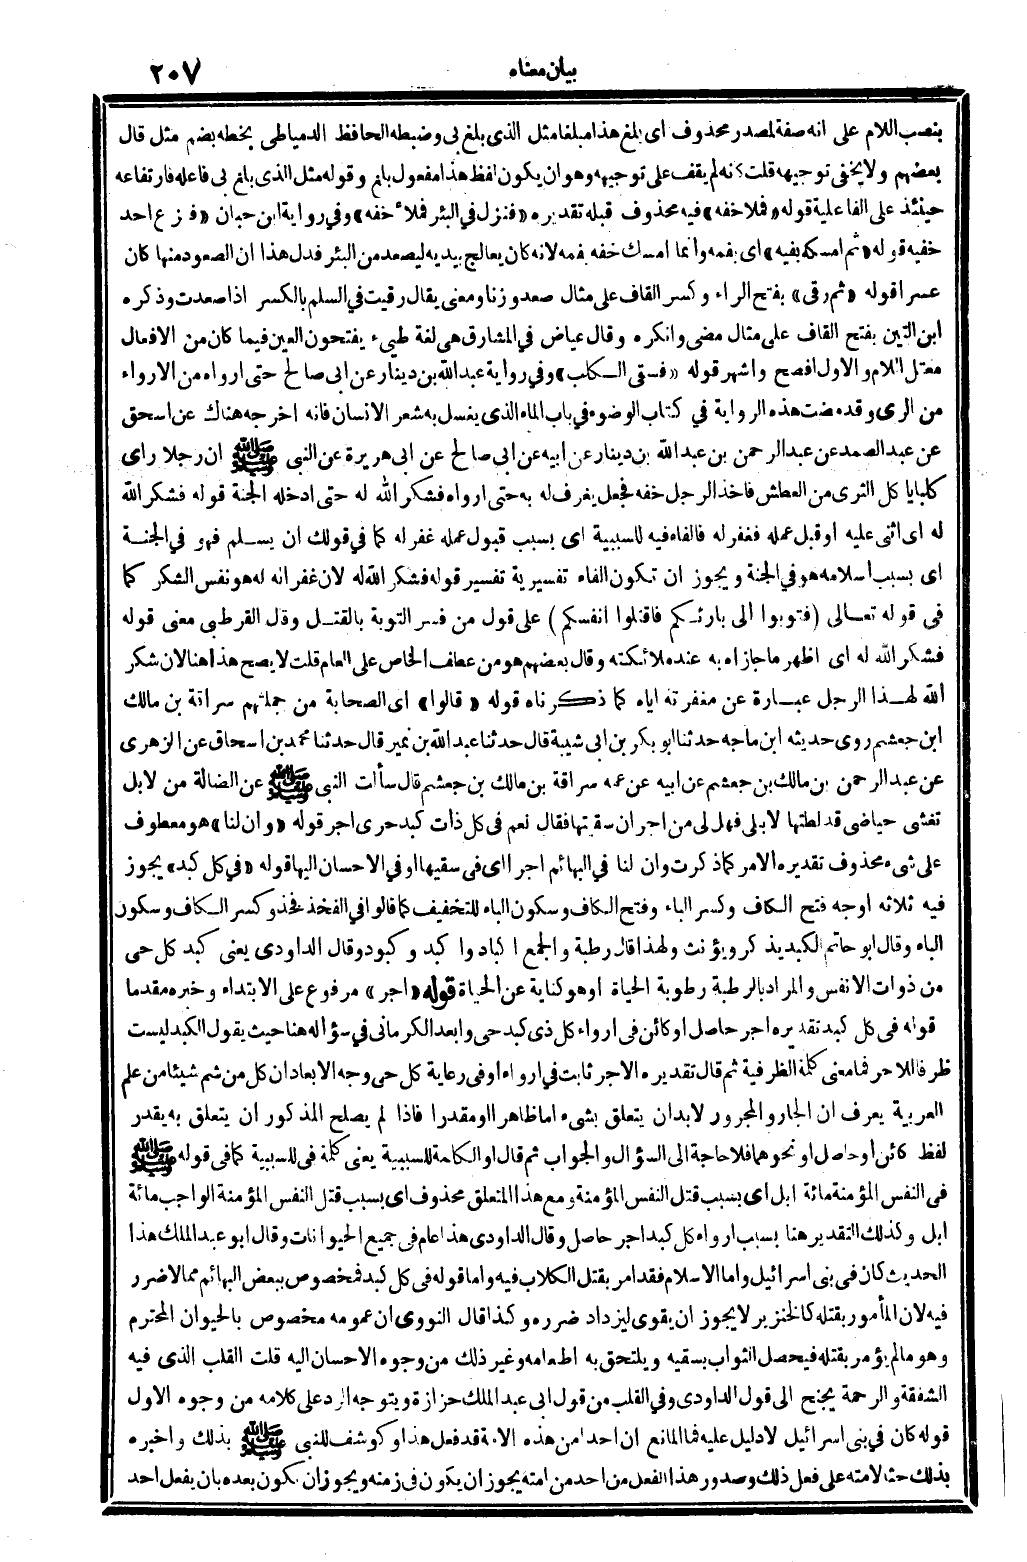 بيان معناه
٢٠٧
بنصب اللام على انه صفة لمصدر محذوف اى بلغ هذا مبلغا مثل الذى بلغ بى وضبطه الحافظ الدمياطى بخطه بضم مثل قال
بعضهم ولا يخفى توجيهه قلت كأنه لم يقف على توجيهه وهو ان يكون لفظ هذا مفعول بلغ وقوله مثل الذى بلغ بى فاعله فارتفاعه
حينئذ على الفاعلية قوله «فملا خفه» فيه محذوف قبله تقديره «فنزل فى البئر فملأ خفه» وفى رواية ابن حبان «فنزع احد
خفيه قوله «ثم امسكه بفيه» اى بفمه وانما امسك خفه بفمه لانه كان يعالج بيديه ليصعد من البئر فدل هذا ان الصعود منها كان
عسرا قوله «ثم رقى» بفتح الراء وكسر القاف على مثال صعد وزنا ومعنى يقال رقيت فى السلم بالكسر اذا صعدت وذكره
ابن التين بفتح القاف على مثال مضى وانكره وقال عياض فى المشارق هى لغة طيىء يفتحون العين فيما كان من الافعال
معتل اللام والاول افصح واشهر قوله «فسقى الكلب» وفى رواية عبد الله بن دينار عن ابى صالح حتى ارواه من الارواء
من الرى وقد مضت هذه الرواية فى كتاب الوضوء فى باب الماء الذى يغسل به شعر الانسان فانه اخرجه هناك عن اسحق
عن عبد الصمد عن عبد الرحمن بن عبد الله بن دينار عن ابيه عن ابى صالح عن ابى هريرة عن النبى ﷺ ان رجلا راى
كلبا يا كل الثرى من العطش فاخذ الرجل خفه فجعل يغرف له به حتى ارواه فشكر الله له حتى ادخله الجنة قوله فشكر الله
له اى اثنى عليه او قبل عمله فغفر له فالفاء فيه للسببية اى بسبب قبول عمله غفر له كما فى قولك ان يسلم فهو فى الجنة
اى بسبب اسلامه هو فى الجنة ويجوز ان تكون الفاء تفسيرية تفسير قوله فشكر الله له لان غفرانه له هو نفس الشكر كما
فى قوله تعالى (فتوبوا الى بارئكم فاقتلوا انفسكم) على قول من فسر التوبة بالقتل وقال القرطبى معنى قوله
فشكر الله له اى اظهر ما جازاه به عند ملائكته وقال بعضهم هو من عطف الخاص على العام قلت لا يصح هذا هنا لان شكر
الله لهذا الرجل عبارة عن مغفرته اياه كما ذكرناه قوله «قالوا» اى الصحابة من جملتهم سراقة بن مالك
ابن جعشم روى حديثه ابن ماجه حدثنا ابو بكر بن ابى شيبة قال حدثنا عبد الله بن نمير قال حدثنا محمد بن اسحاق عن الزهرى
عن عبد الرحمن بن مالك بن جعشم عن ابيه عن عمه سراقة بن مالك بن جعشم قال سألت النبى ﷺ عن الضالة من لابل
تغشى حياضى قد لطتها لابلى فهل لى من اجر ان سقيتها فقال نعم فى كل ذات كبد حرى اجر قوله «وان لنا» هو معطوف
على شىء محذوف تقديره الامر كما ذكرت وان لنا فى البهائم اجرا اى فى سقيها او فى الاحسان اليها قوله «فى كل كبد» يجوز
فيه ثلاثه اوجه فتح الكاف وكسر الباء وفتح الكاف وسكون الباء للتخفيف كما قالوا فى الفخذ فخذ وكسر الكاف وسكون
الباء وقال ابو حاتم الكبد يذكر ويؤنث ولهذا قال رطبة والجمع اكباد واكبد وكبود وقال الداودى يعنى كبد كل حى
من ذوات الانفس والمراد بالرطبة رطوبة الحياة او هو كناية عن الحياة قوله «اجر» مرفوع على الابتداء وخبره مقدما
قوله فى كل كبد تقديره اجر حاصل او كائن فى ارواء كل ذى كبد حى وابعد الكرمانى فى سؤاله هنا حيث يقول الكبد ليست
ظرفا للاجر فما معنى كلمة الظرفية ثم قال تقديره الاجر ثابت فى ارواء او فى رعاية كل حى وجه الابعاد ان كل من شم شيئا من علم
العربية يعرف ان الجار والمجرور لابد ان يتعلق بشىء اما ظاهرا او مقدرا فاذا لم يصلح المذكور ان يتعلق به يقدر
لفظ كائن أو حاصل او نحوهما فلا حاجة الى السؤال والجواب ثم قال او الكلمة للسببية يعنى كلمة فى للسببية كما فى قوله ﷺ
فى النفس المؤمنة مائة ابل اى بسبب قتل النفس المؤمنة ومع هذا المتعلق محذوف اى بسبب قتل النفس المؤمنة الواجب مائة
ابل وكذلك التقدير هنا بسبب ارواء كل كبد اجر حاصل وقال الداودى هذا عام فى جميع الحيوانات وقال ابو عبد الملك هذا
الحديث كان فى بنى اسرائيل واما الاسلام فقد امر بقتل الكلاب فيه واما قوله فى كل كبد فمخصوص ببعض البهائم مما لا ضرر
فيه لان المأمور بقتله كالخنزير لا يجوز ان يقوى ليزداد ضرره وكذا قال النووى ان عمومه مخصوص بالحيوان المحترم
وهو ما لم يؤمر بقتله فيحصل الثواب بسقيه ويلتحق به اطعامه وغير ذلك من وجوه الاحسان اليه قلت القلب الذى فيه
الشفقة والرحمة يجنح الى قول الداودى وفى القلب من قول ابى عبد الملك حزازة ويتوجه الرد على كلامه من وجوه الاول
قوله كان فى بنى اسرائيل لا دليل عليه فما المانع ان احدا من هذه الامة قد فعل هذا وكوشف للنبى ﷺ بذلك واخبره
بذلك حثا لامته على فعل ذلك وصدور هذا الفعل من احد من امته يجوز ان يكون فى زمنه ويجوز ان يكون بعده بان يفعل احد